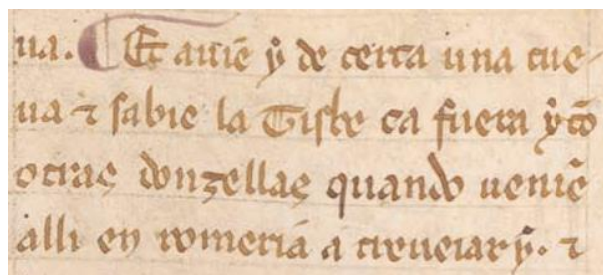 ua. ¶ Et auiẽ ẏ de cerca una cue-
ua ⁊ sabie la Tisbe ca fuera ẏ cõ
otras donzellas quando ueniẽ
alli en romeria a trebeiar ẏ. ⁊